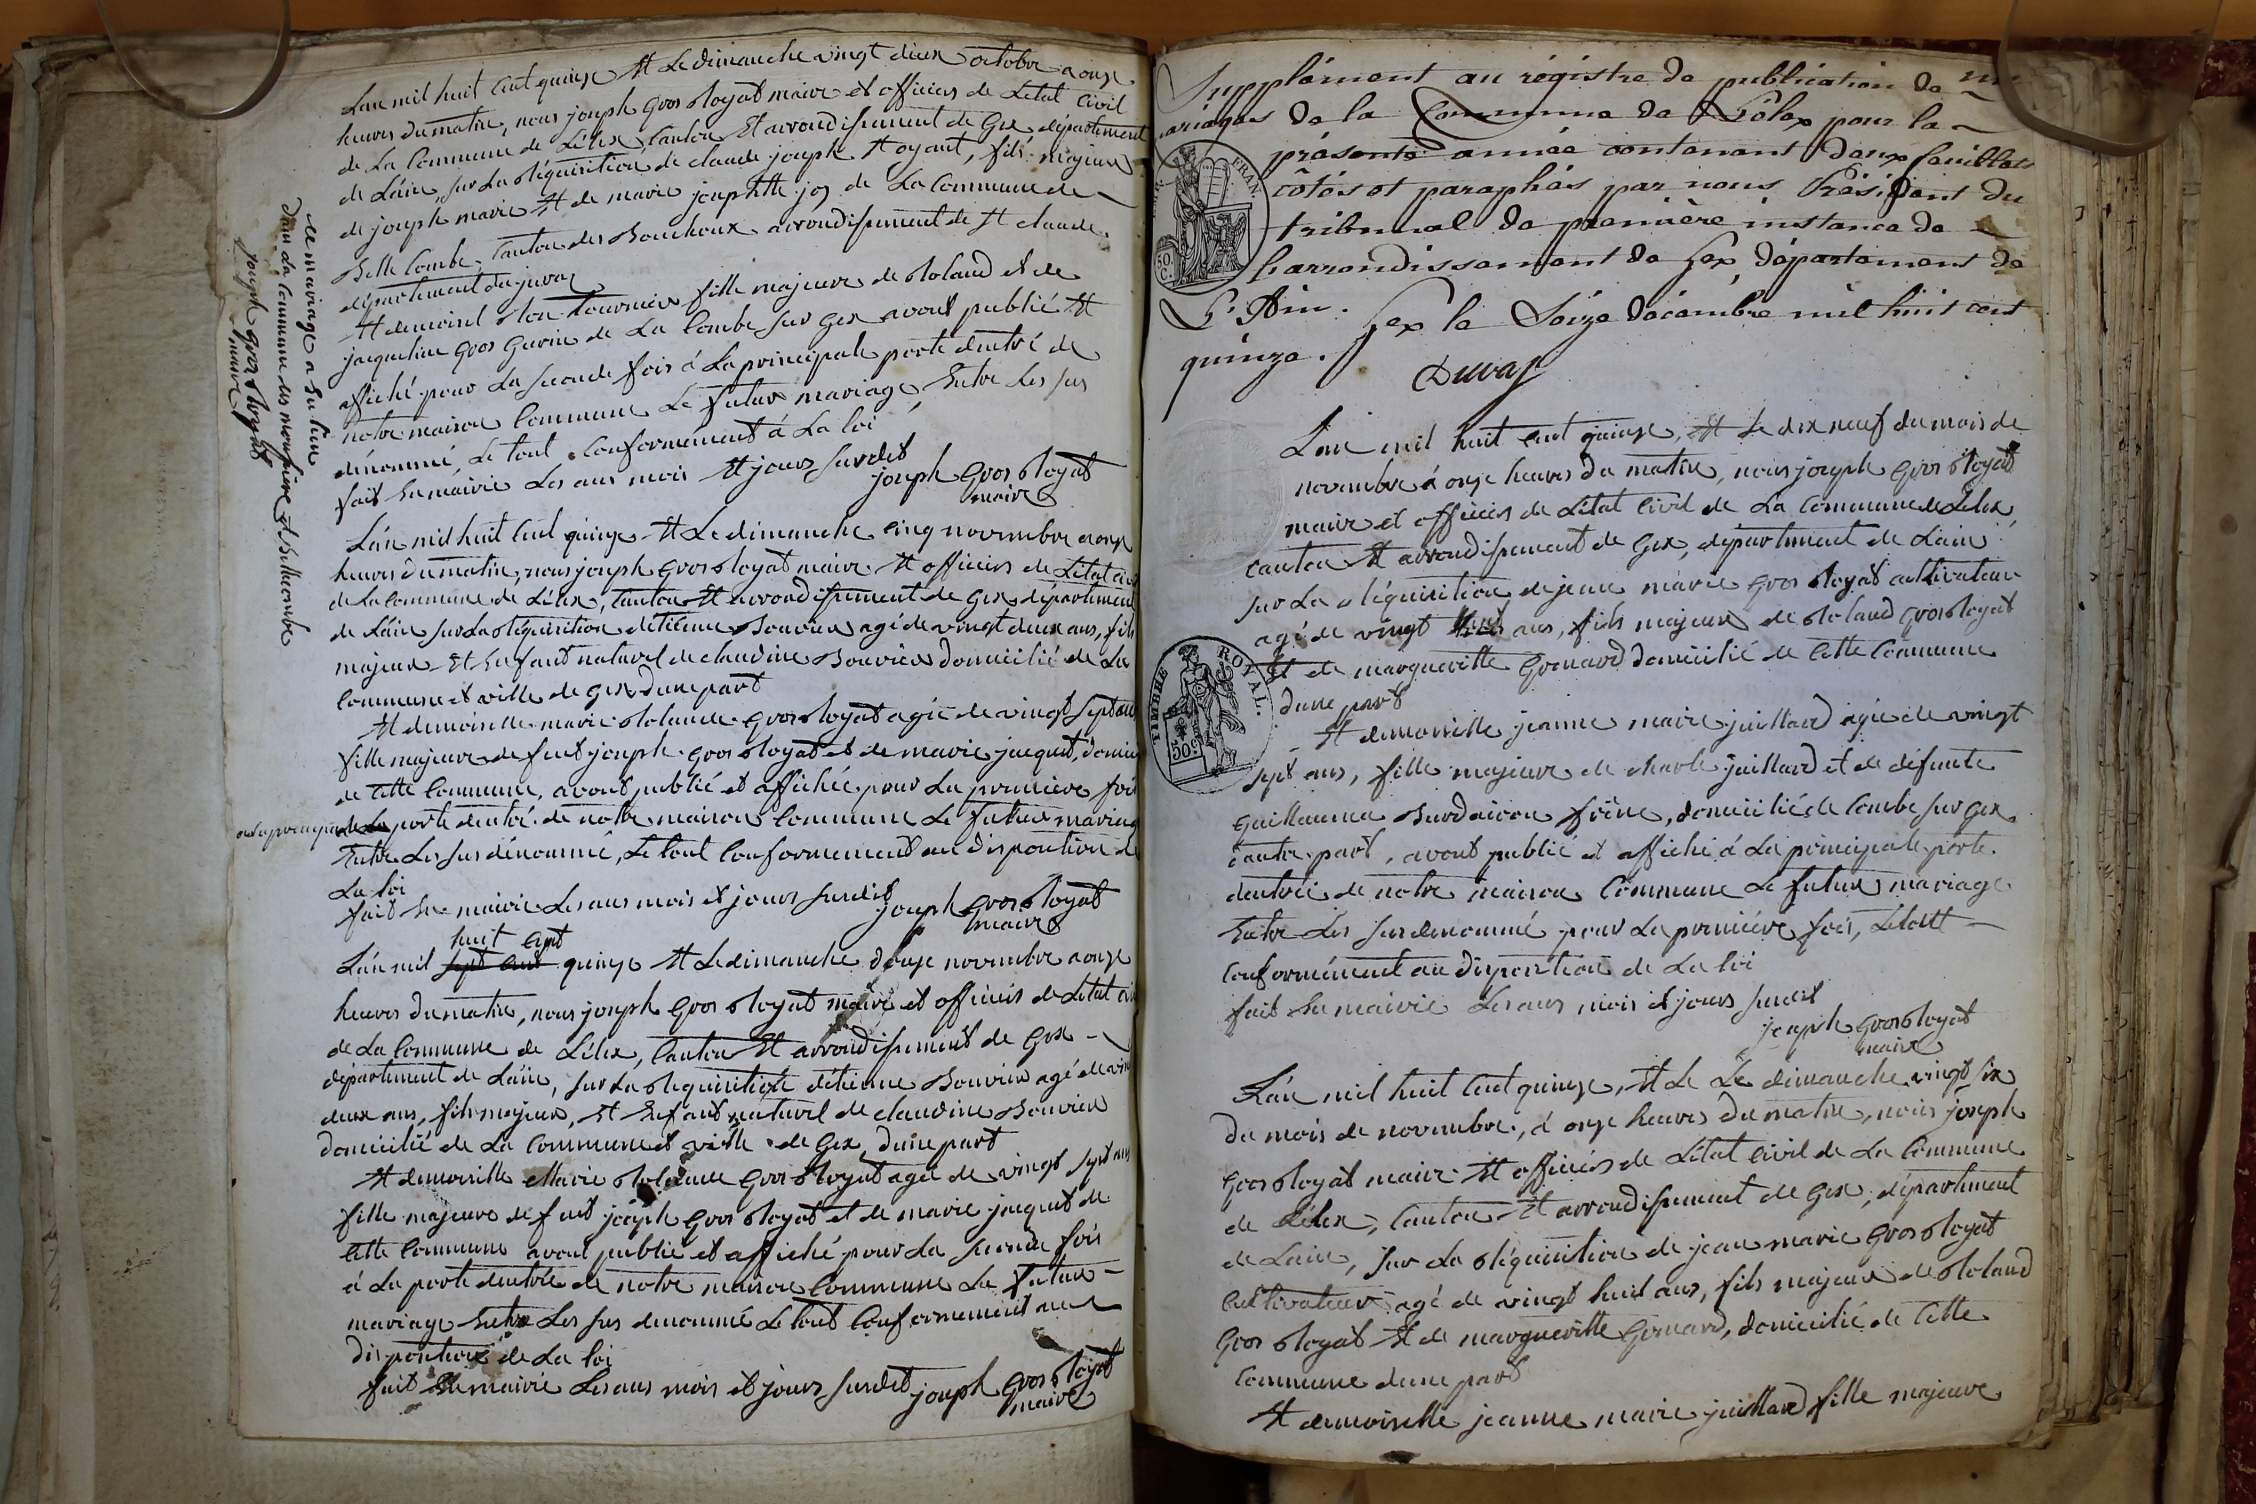 L'an mil huit cent quinze Et Le dimanche vingt deux octobre a onze
heures du matin, nous joseph Gros Royat maire et officier de L'etat Civil
de La Commune de Lélex, Canton Et arrondissement de Gex département
de L'ain, sur La Réquisition de claude joseph Royant, fils majeur
de joseph marie Et de marie josephte joz de La Commune de
Belle Combe Canton des Bouchoux arrondissement de St claude
département du jura
Et demoisel Tournier fille majeure de Roland et de
jaqueline Gros Gurin de La Combe sur Gex avont publié Et
affiché pour La seconde fois à La principale porte dentré de
notre maison Commune Le futur mariage Entre Les sus
dénommé, Le tout Conformément à La loi
fait En mairie Les ans mois Et jours susdit
joseph Gros Royat
maire
Le mariage a Eu lieu
dans La Commune des moussière Et Bellecombe
joseph Gros Royat
maire
L'an mil huit Cent quinze Et Le dimanche Cinq novembre a onze
heures du matin, nous joseph Gros Royat maire Et officier de L'etat Civil
de La Commune de Lélex, Canton Et arrondissement de Gex département
de L'ain sur La Réquisition détienne Bouvier agé de vingt deux ans, fils
majeur Et Enfant naturel de claudine Bouvier domicilié de La
Commune et ville de Gex dune part
Et demoiselle marie Rolande Gros Royat agée de vingt sept ans
fille majeure de feut joseph Gros Royat et de marie jacquet, domicilié
de Cette Commune, avont publié et affichée pour La premiere fois
a La principale porte dentré de notre maison Commune Le futur mariage
Entre Les sus dénommé, Le tout Conformement au disposition de
La loi
fait En mairie Les ans mois et jours susdit
joseph Gros Royat
maire
huit Cent
L'an mil sept Cent quinze Et Le dimanche douze novembre a onze
heures du matin, nous joseph Gros Royat maire et officier de L'etat Civil
de La Commune de Lélex, Canton Et arrondissement de Gex
département de L'ain, sur La Réquisition détienne Bouvier agé de vingt
deux ans, fils majeur, Et Enfant naturel de claudine Bouvier
domicilié de La Commune et ville de Gex, dune part
Et demoiselle Marie Rolande Gros Royat agée de vingt sept ans
fille majeure de feut joseph Gros Royat et de marie jacquet de
Cette Commune avont publié et affiché pour La seconde fois
à La porte dentrée de notre maison Commune Le futur
mariage Entre Les sus denommé Le tout Conformement au
disposition de La loi
fait En mairie Les ans mois et jours susdit joseph Gros Royat
maire
Supplément au régistre de publication de m
ariages de la Commune de Lélex pour la
présente année contenant deux feuillets
côtés et paraphés par nous Président du
tribunal de première instance de
l'arrondissement de Gex, département de
L'Ain. Gex le Seize décembre mil huit cent
quinze.
Duval
FRAN.
50.
C.
TIMBRE ROYAL.
50.c
L'an mil huit Cent quinze, Et Le dix neuf du mois de
novembre à onze heures du matin, nous joseph Gros Royat
maire et officier de L'etat Civil de La Commune de Lélex,
Canton Et arrondissement de Gex, département de L'ain
sur La Réquisition de jean marie Gros Royat cultivateur
agé de vingt huit ans, fils majeur de Roland Gros Royat
Et de margueritte Gronard domicilié de Cette Commune
dune part
Et demoiselle jeanne marie juillard agée de vingt
sept ans, fille majeure de charle juillard et de défunte
Guillauma Burdairon frêne, domicilié de Combe sur Gex
dautre part, avont publié et affiché à La principale porte
dentrée de notre maison Commune Le futur mariage
Entre Les sus denommé pour La première fois, Le tout
Conformément au disposition de La loi
fait En mairie Les ans mois et jours susdit
joseph Gros Royat
maire
L'an mil huit Cent quinze, Et Le Le dimanche vingt six
du mois de novembre, à onze heures du matin, nous joseph
Gros Royat maire Et officier de L'etat Civil de La Commune
de Lélex, Canton Et arrondissement de Gex, département
de L'ain, sur La Réquisition de jean marie Gros Royat
Cultivateur agé de vingt huit ans, fils majeur de Roland
Gros Royat Et de margueritte Gronard, domicilié de Cette
Commune dune part
Et demoiselle jeanne marie juillard fille majeure